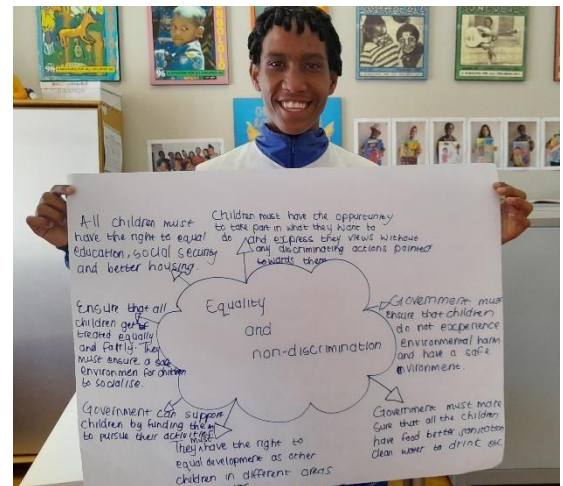 All children must
have the right to equal
education, social security
and better housing.
Children must have the oppurtunity
to take part in what they want to
do and express they views without
any discriminating actions pointed
towards them
Equality
and
non-discrimination
Ensure that all
children get
treated equally
and fairly. They
must ensure a safe
environmen for children
to socialise.
Government must
ensure that children
do not experience
environmental harm
and have a safe
nvironment.
Government can support
children by funding them
to pursue their activities
must
They have the right to
equal development as other
children in different areas
Government must make
sure that all the children
have food better sanitation
clean water to drink etc
96
96